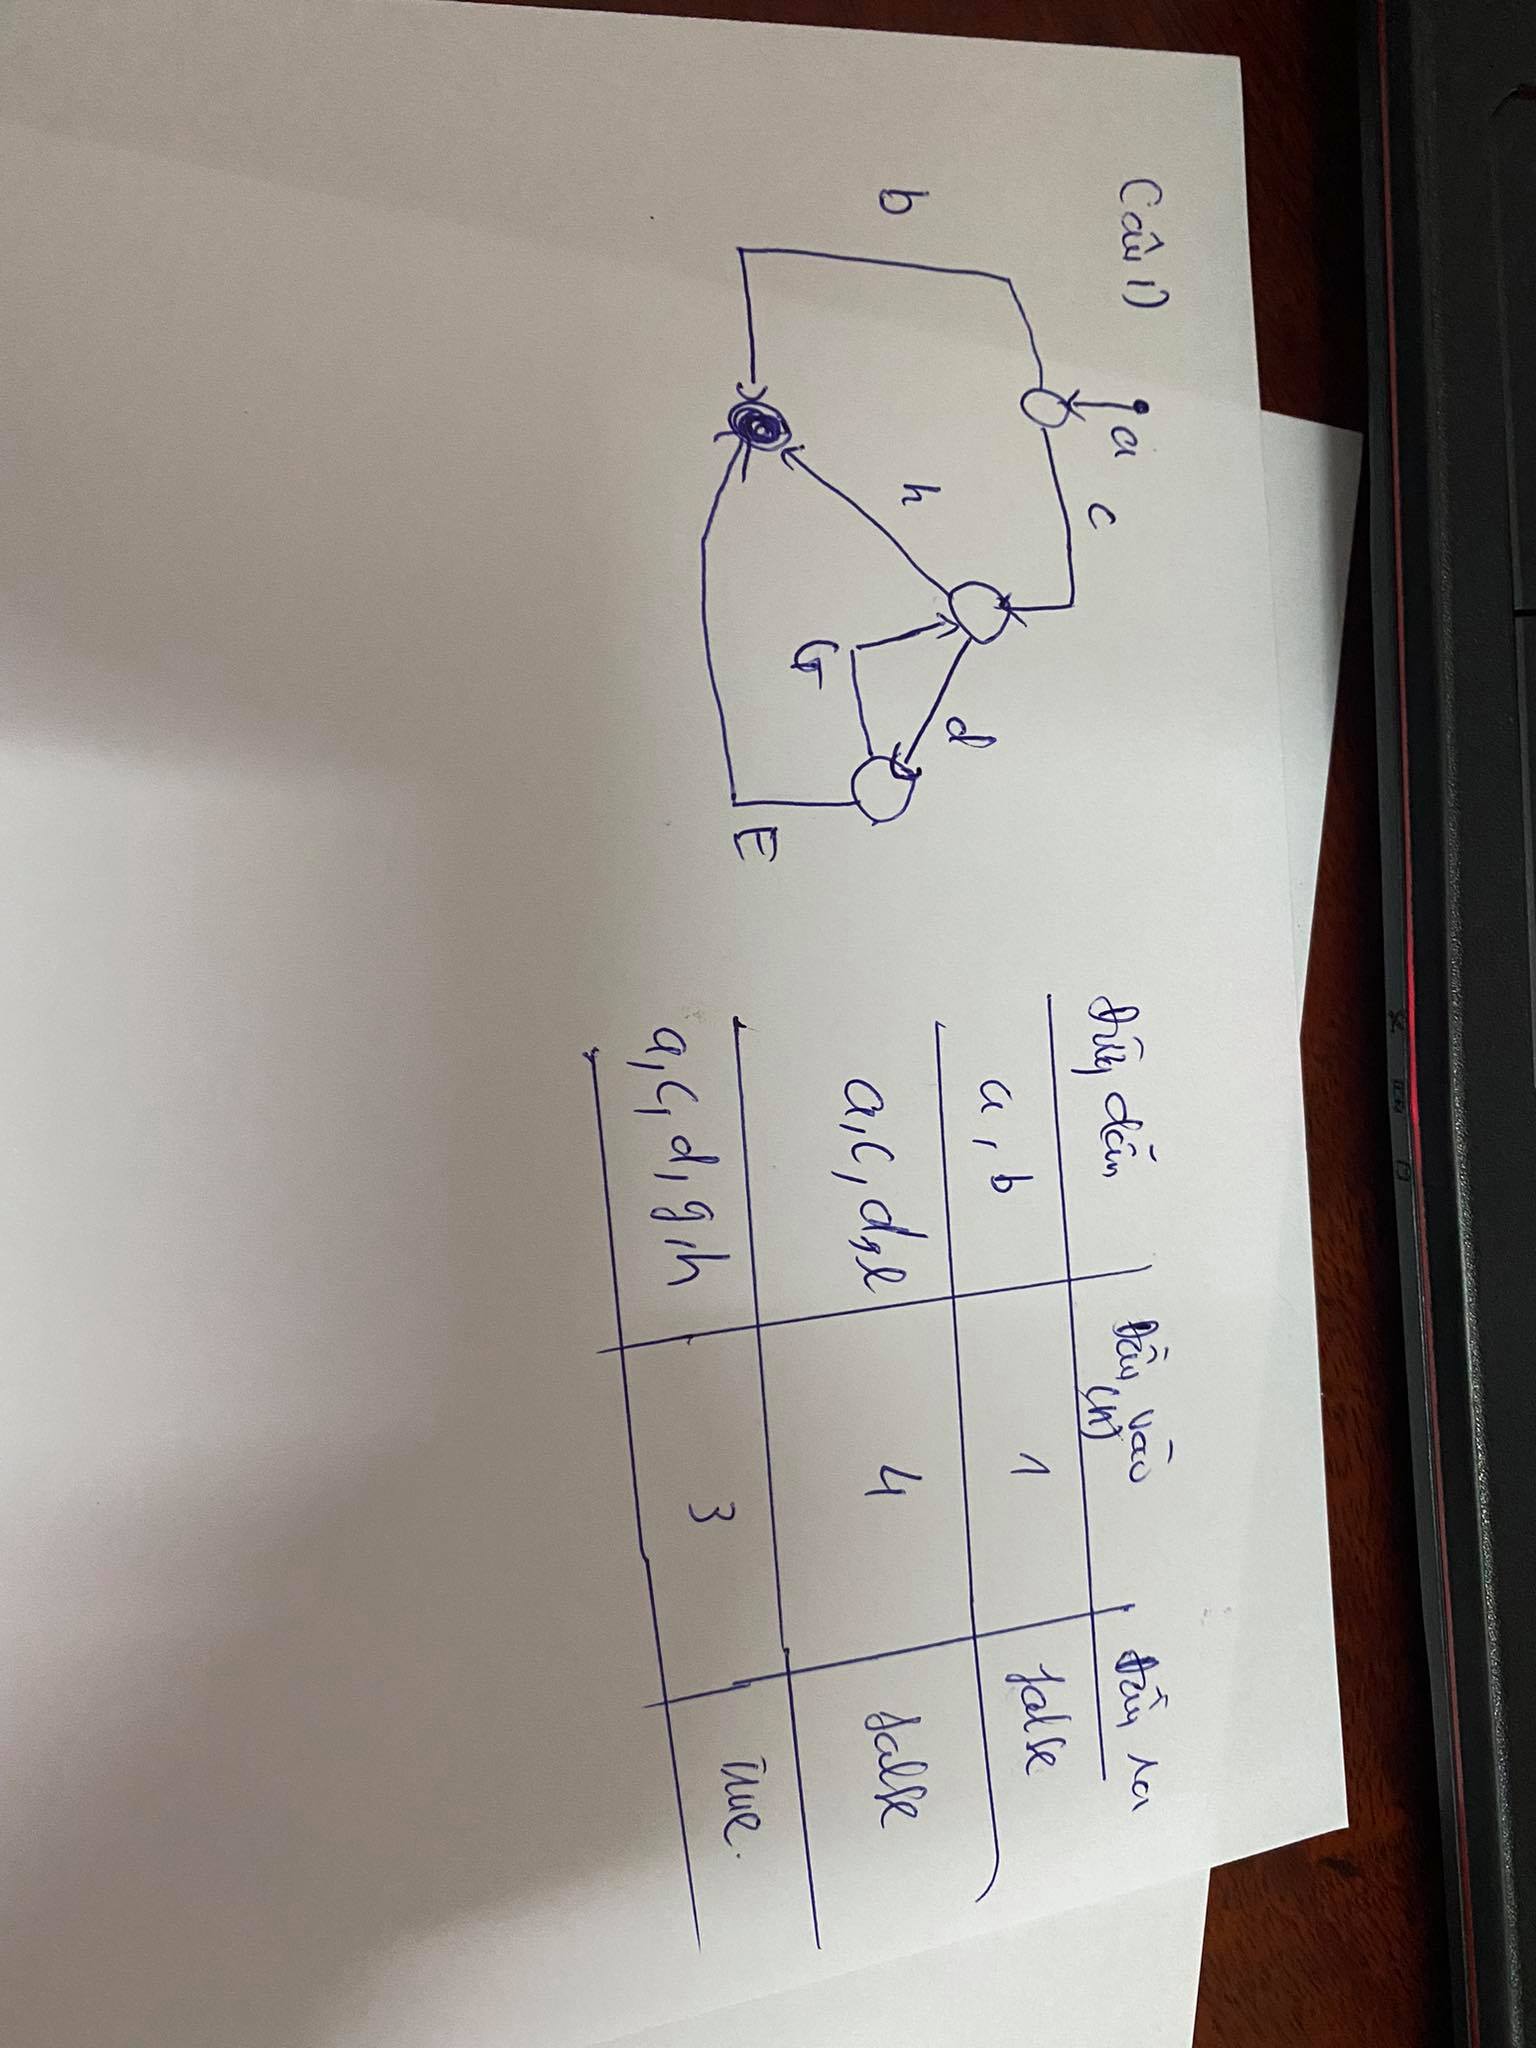 Câu 1)
a
c
b
h
d
G
E
đường dẫn đầu vào đầu ra
(n)
a, b 1 false
a, c, d, e 4 false
a, c, d, g, h 3 True.